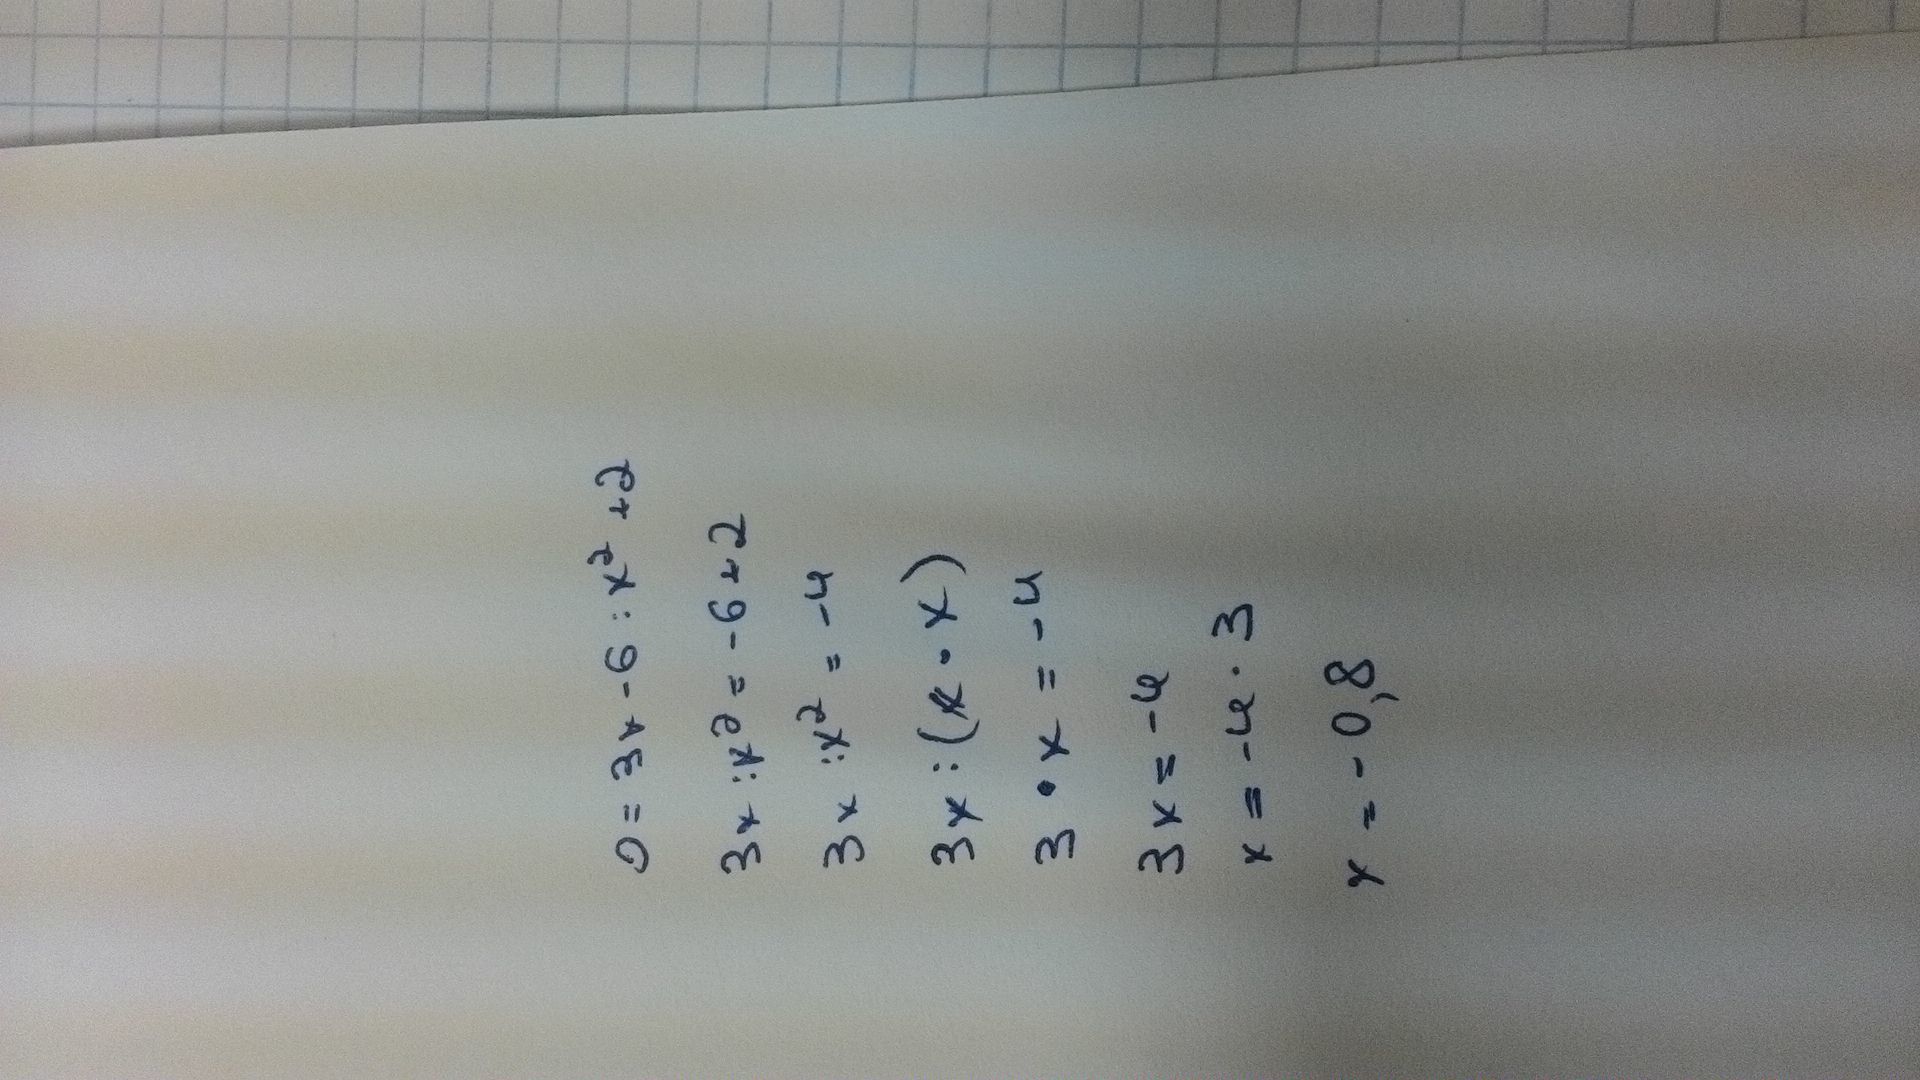 0 = 3x - 6 : x² + 2
3x : x² = -6 + 2
3x : x² = -4
3x : (x · x)
3 · x = -4
3x = -4
x = -4 · 3
x = -0,8